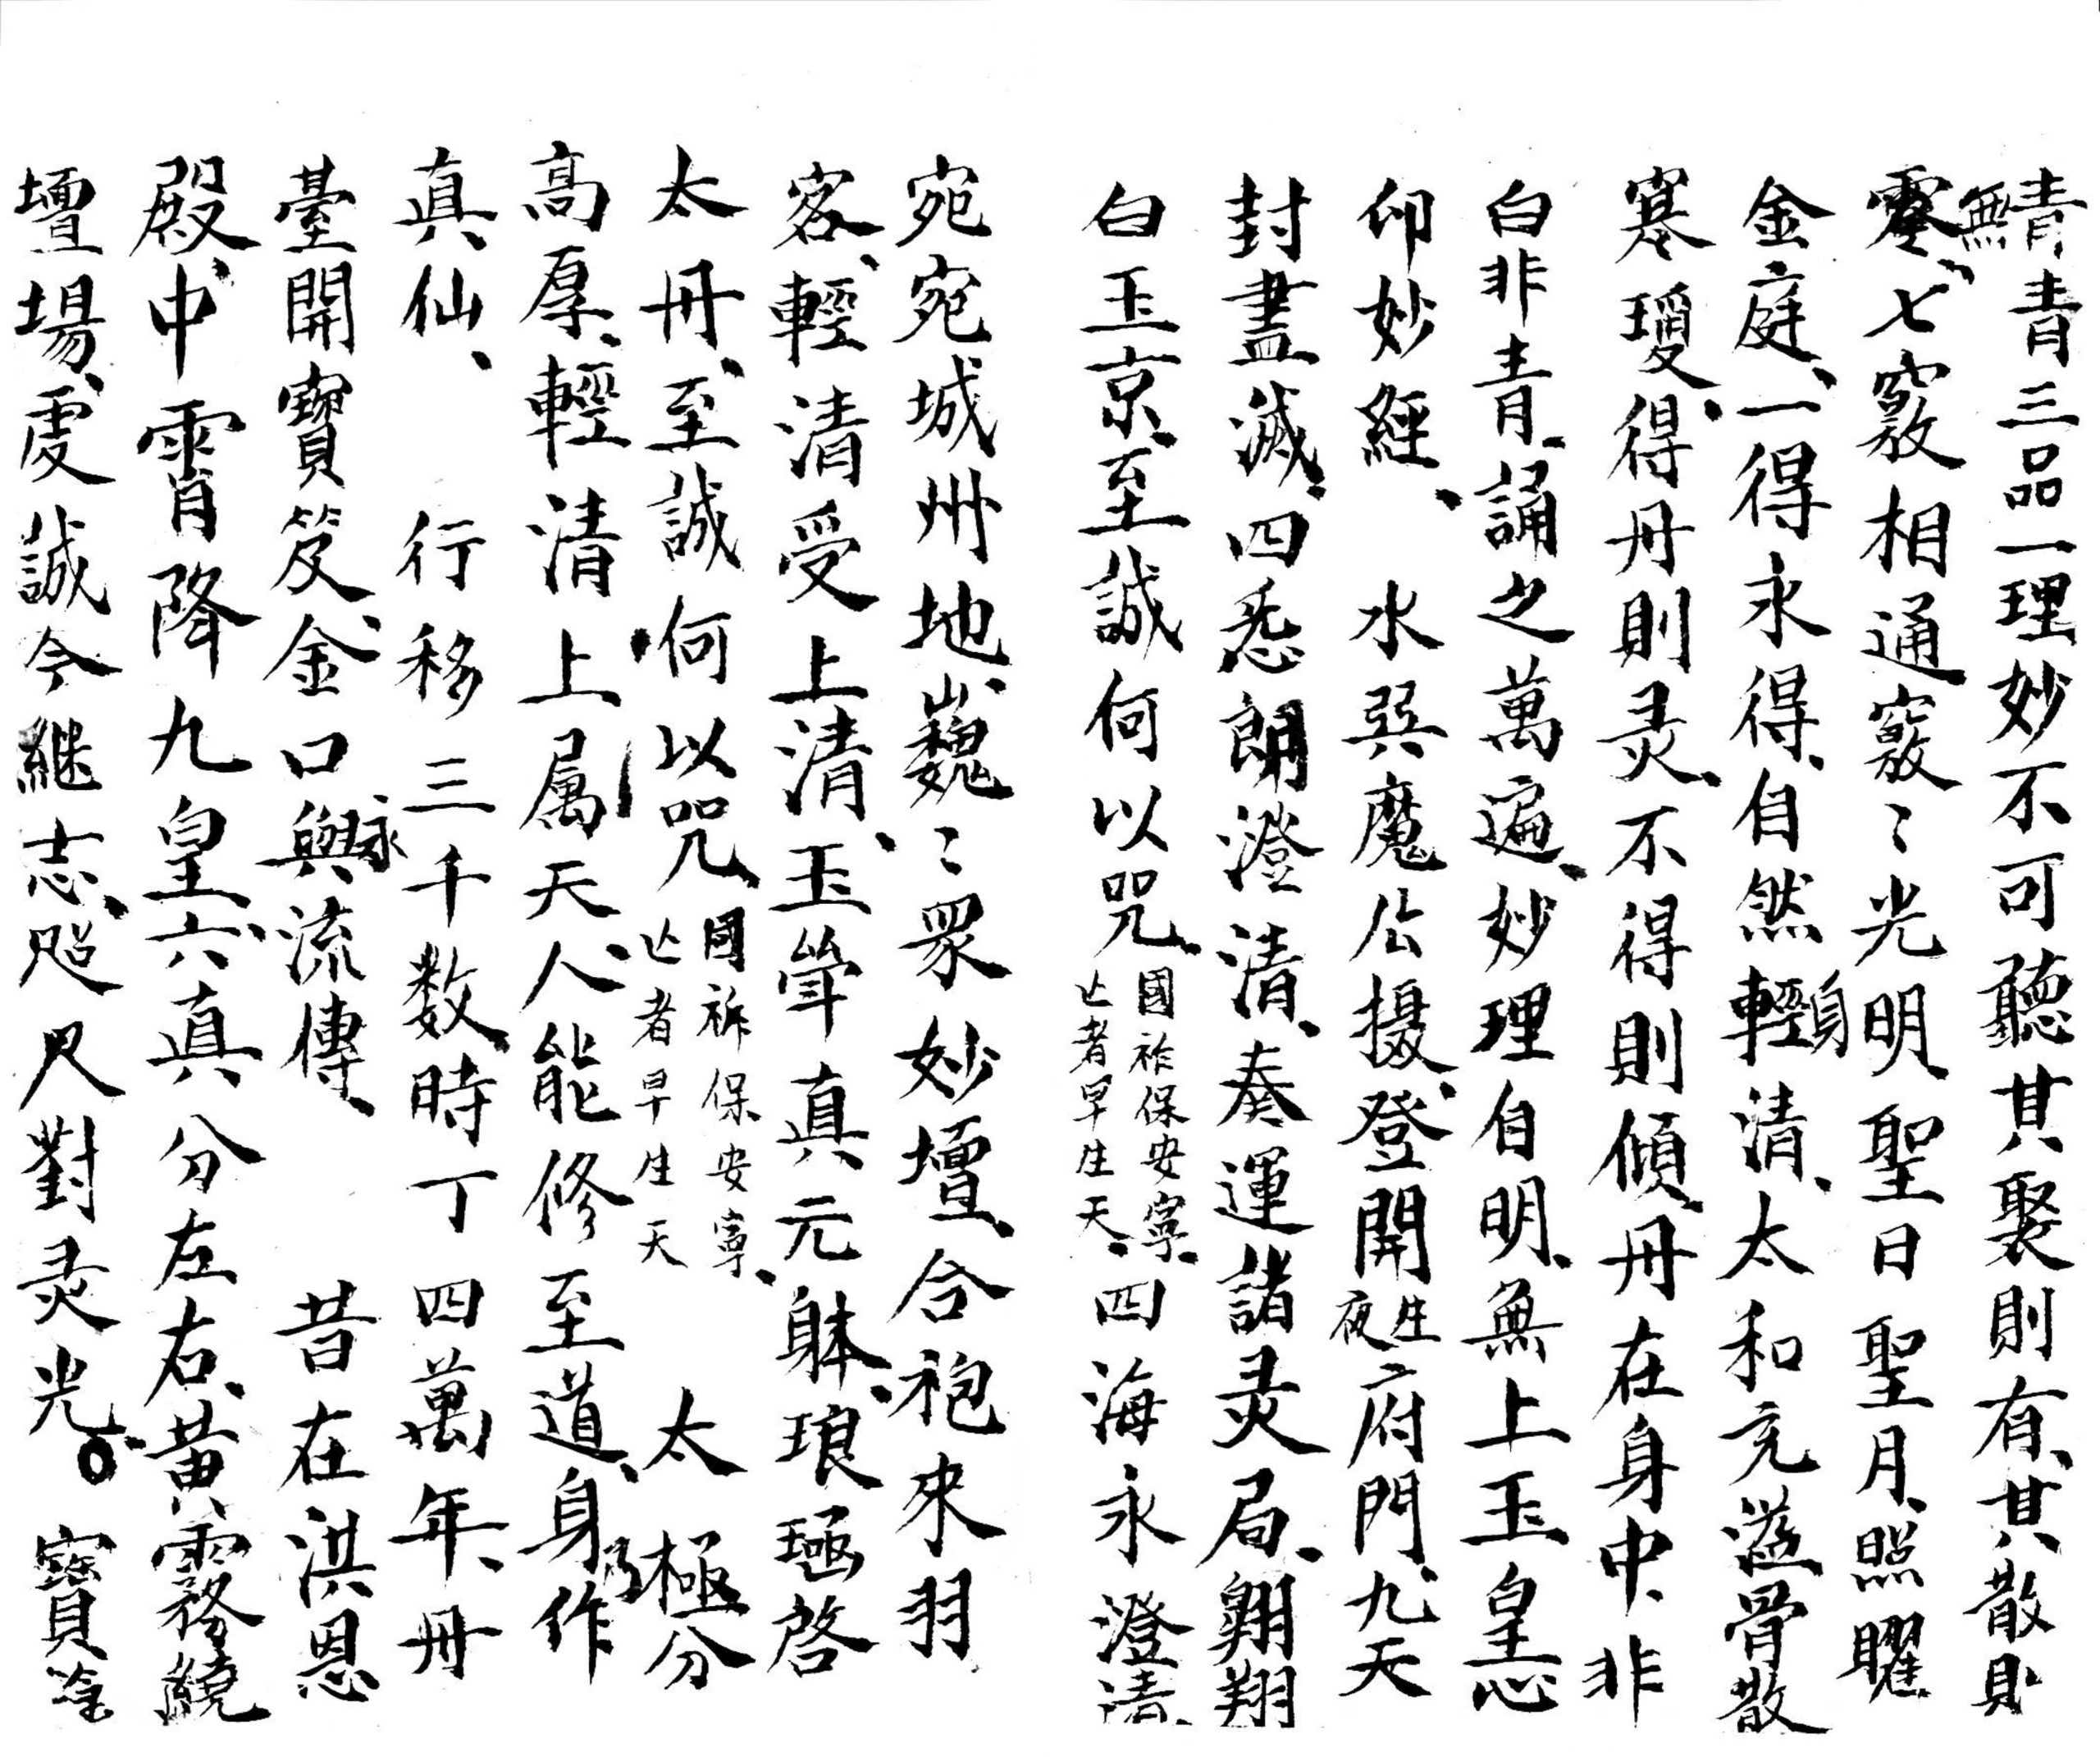 青三品一理妙不可聽其聚則有其散則
零七竅相通竅〻光明聖日聖月照曜
金庭一得永得自然身輕清太和充溢骨散
寒瓊得丹則灵不得則傾丹在身中非
白非青誦之萬遍妙理自明無上玉皇心
印妙經 水與魔公攝登開生夜府門九天
封盡滅四悉朗澄清奏運諸灵局翱翔
白玉京至誠何以咒國祚保安寧亡者早生天四海永澄清
宛宛城州地巍〻眾妙壇合袍來羽
客輕清受上清玉聳真元躰琅函啓
太丹至誠何以咒國祚保安寧亡者早生天 太極分
高厚輕清上属天人能修至道身乃作
真仙 行移三千数時丁四萬年丹
臺開寶笈金口永與流傳 昔在洪恩
殿中霄降九皇六真分左右黃霧繞
壇場虔誠今繼志咫尺對灵光 寶塗